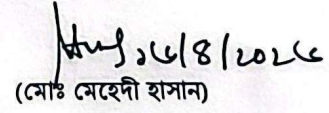 ১৬/৪/২০২৬
(মোঃ মেহেদী হাসান)